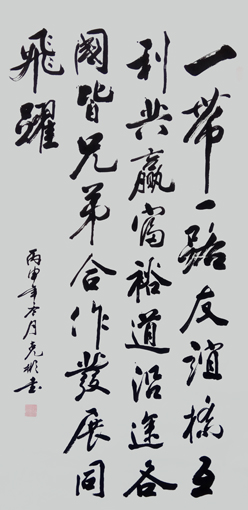 一帶一路友誼橋互
利共贏富裕道沿途各
國皆兄弟合作發展同
飛躍
丙申年冬月克彬书